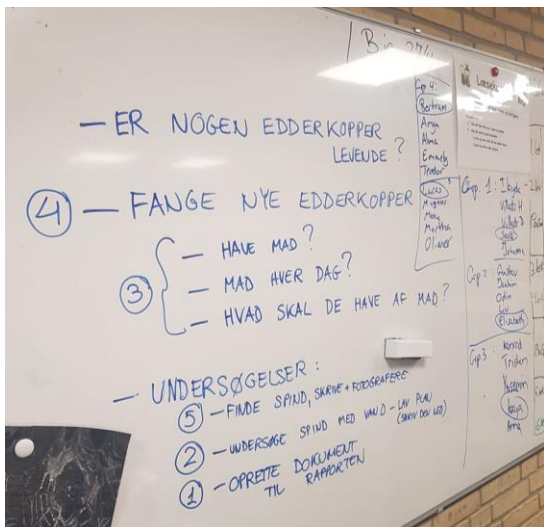 Bio
— ER NOGEN EDDERKOPPER
LEVENDE ?
④ — FANGE NYE EDDERKOPPER
③ — HAVE MAD ?
— MAD HVER DAG ?
— HVAD SKAL DE HAVE AF MAD ?
— UNDERSØGELSER :
⑤ — FINDE SPIND, SKRIVE + FOTOGRAFERE
② — UNDERSØGE SPIND MED VAND – LAV PLAN
(SKRIV DEN NED)
① — OPRETTE DOKUMENT
TIL RAPPORTEN
Grp 4:
Bertram
Anja
Alma
Lucas
Mogens
Martha
Oliver
Grp. 1:
Villads H
Villads
Grp 2: Gustav
Odin
Liv
Elizabeth
Grp 3: Konrad
Tristan
Anna